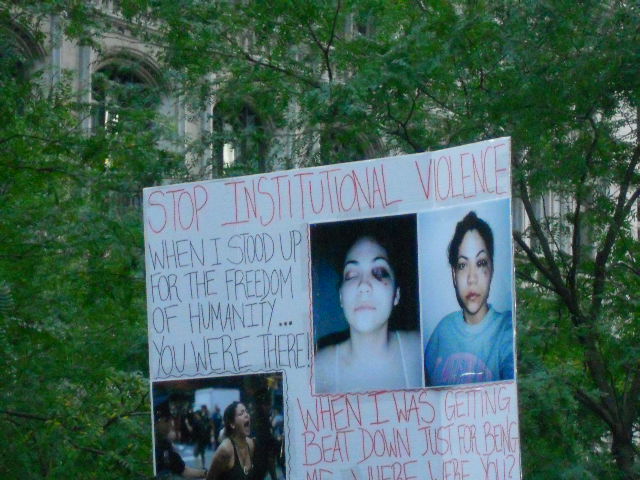 STOP INSTITUTIONAL VIOLENCE
WHEN I STOOD UP
FOR THE FREEDOM
OF HUMANITY...
YOU WERE THERE!
WHEN I WAS GETTING
BEAT DOWN JUST FOR BEING
ME, WHERE WERE YOU?